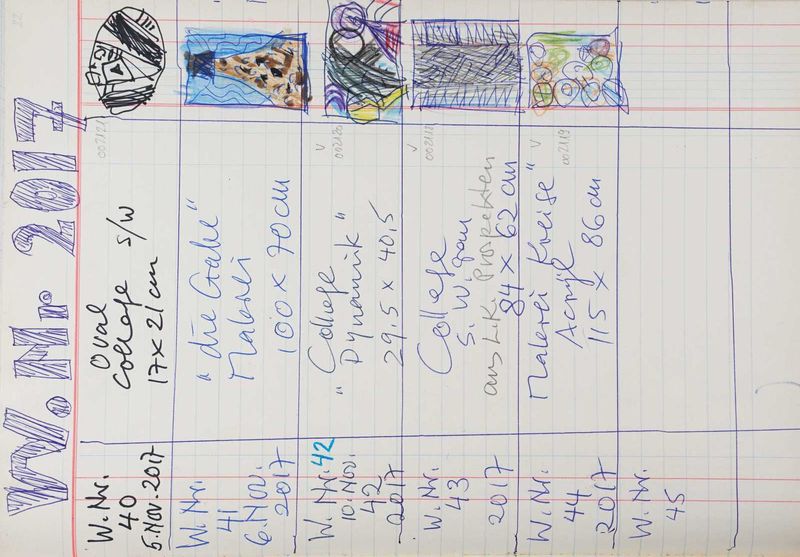 W.Nr. 2017
W.Nr.
40
5.Nov.2017
Oval
Collage s/w
17x21cm
002121
W.Nr.
41
6.Nov.
2017
"die Gabe"
Malerei
100 x 70 cm
W.Nr.42
10.Nov.
42
2017
"Collage
Dynamik"
29,5 x 40,5
002120
W.Nr.
43
2017
Collage
S.W. grau
aus L.K. Prospekten
84 x 62 cm
W.Nr.
44
2017
Malerei Kreise"
Acryl
115 x 86 cm
002119
W.Nr.
45